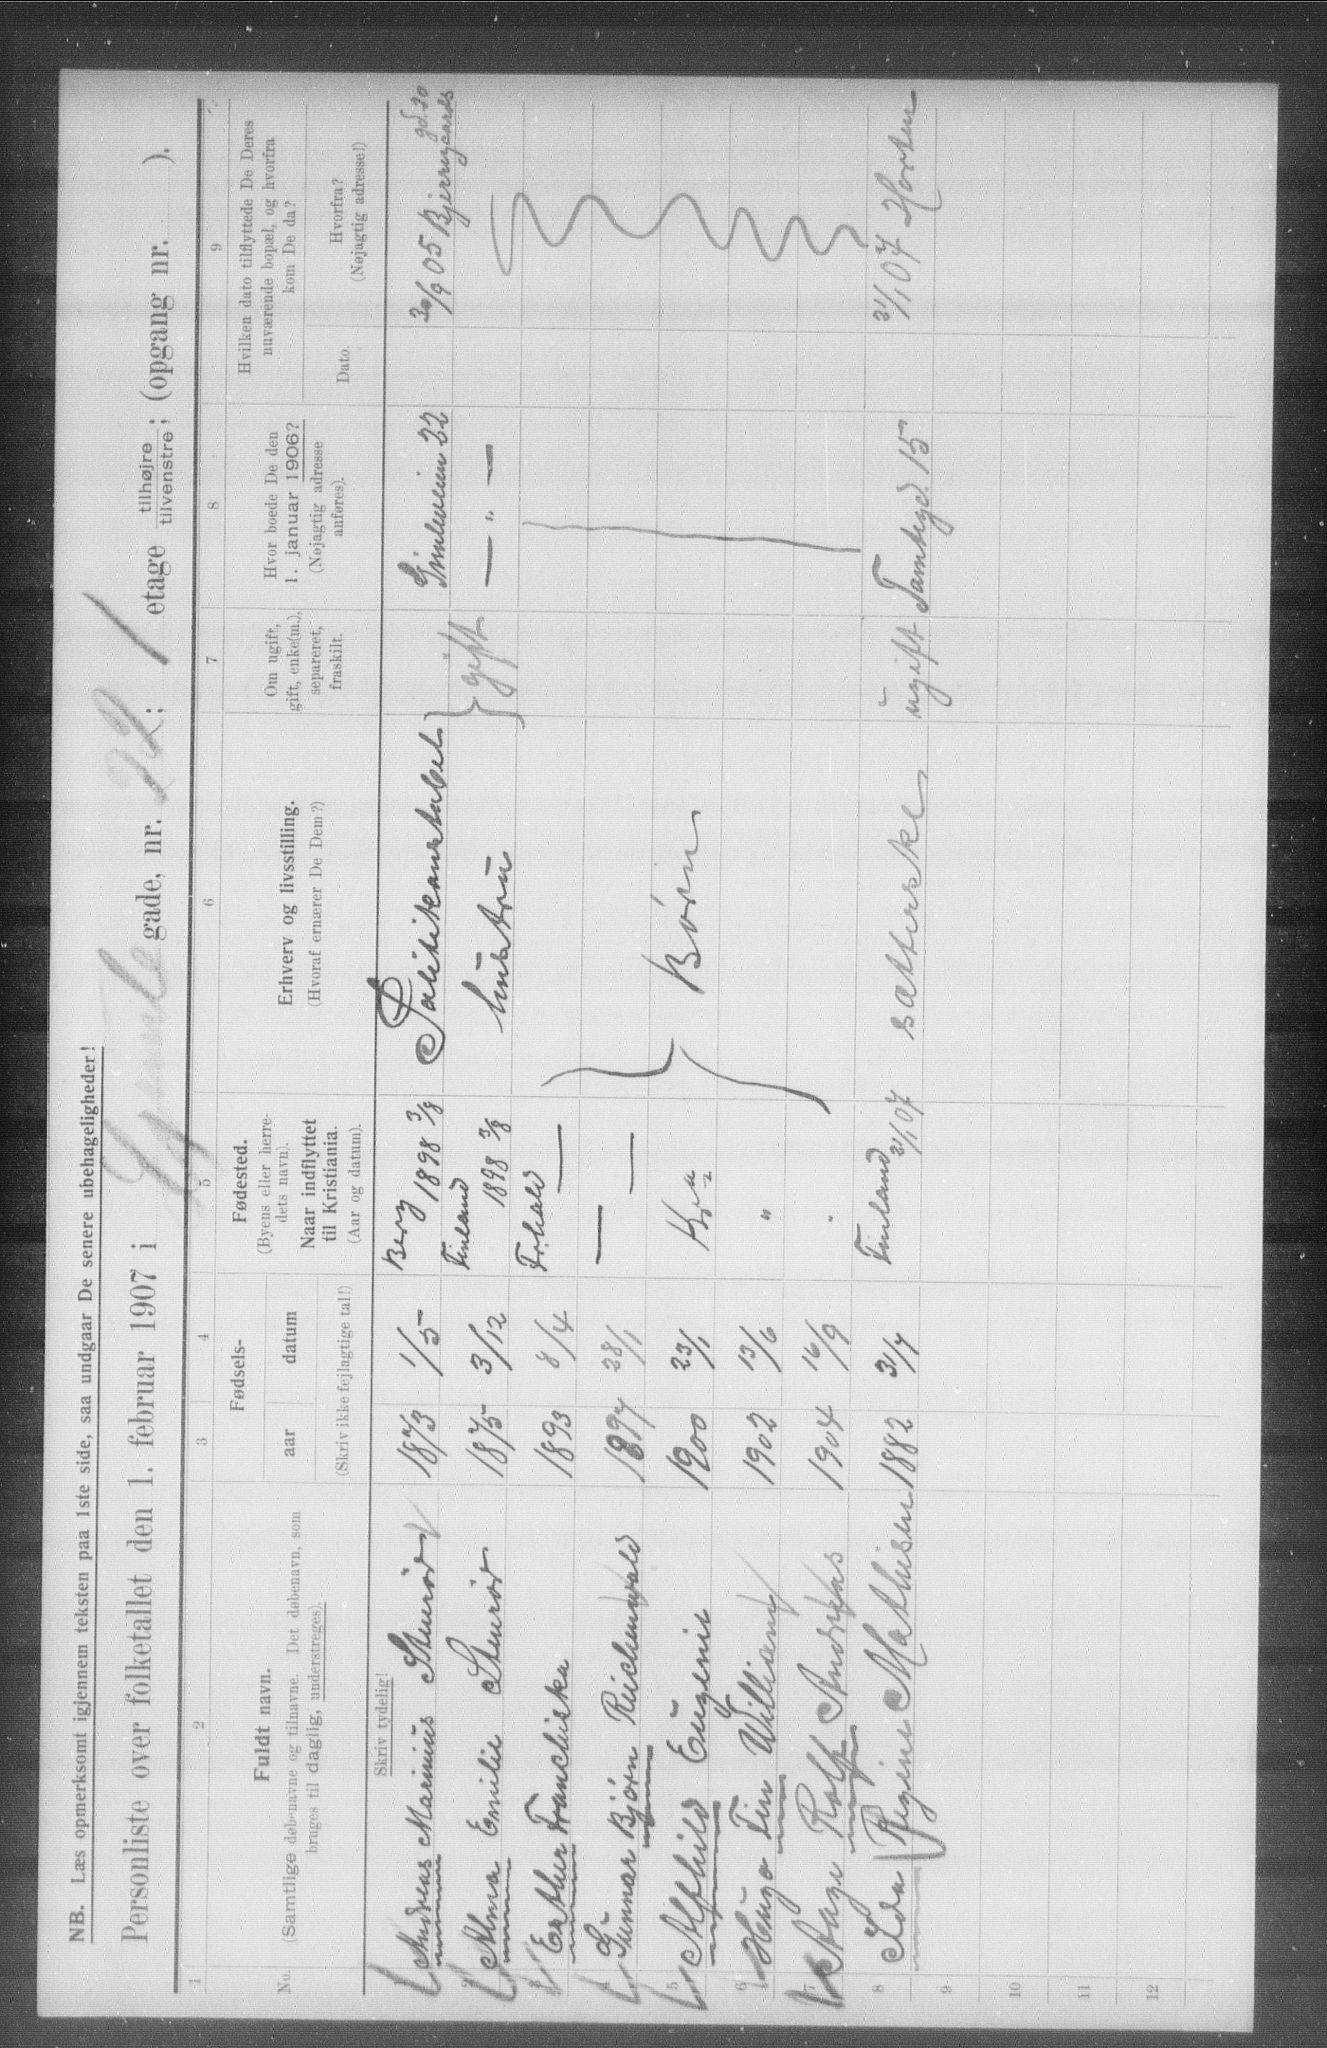 NB. Læs opmerksomt igjennem teksten paa 1ste side, saa undgaar De senere ubehageligheder!
Personliste over folketallet den 1. februar 1907 i gade, nr. 22; 1 etage tilhøjre tilvenstre; (opgang nr. ).
1 2 3 4 5 6 7 8 9
No.
Fuldt navn.
(Samtlige døbenavne og tilnavne. Det døbenavn, som
bruges til daglig, understreges).
Fødsels-
aar datum
(Skriv ikke fejlagtige tal!)
Fødested.
(Byens eller herre-
dets navn).
Naar indflyttet
til Kristiania.
(Aar og datum).
Erhverv og livsstilling.
(Hvoraf ernærer De Dem?)
Om ugift,
gift, enke(m.),
separeret,
fraskilt.
Hvor boede De den
1. januar 1906?
(Nøjagtig adresse
anføres).
Hvilken dato tilflyttede De Deres
nuværende bopæl, og hvorfra
kom De da?
Dato.
Hvorfra?
(Nøjagtig adresse!)
Skriv tydelig!
1 Andreas Marinius Stenrød 1873 1/5 Berg 1898 3/8 Politikonstabel gift 22 30/9 05 Bjerregaards gd. 20
2 Alma Emilie Stenrød 1875 3/12 Finland 1898 3/8 hustru — „ —
3 Franchiska 1893 8/4 Fr.hald —
4 Gunnar Bjørn 1897 28/1 — —
5 Alfhild Eugenie 1900 23/1 Kra Børn
6 Hugo Fin William 1902 13/6 "
7 Aage Rolf Andreas 1904 16/9 "
8 Ida Regine Mathisen 1882 31/7 Finland 21/1 07 Sætterske ugift 15 21/1 07 Horten
9
10
11
12